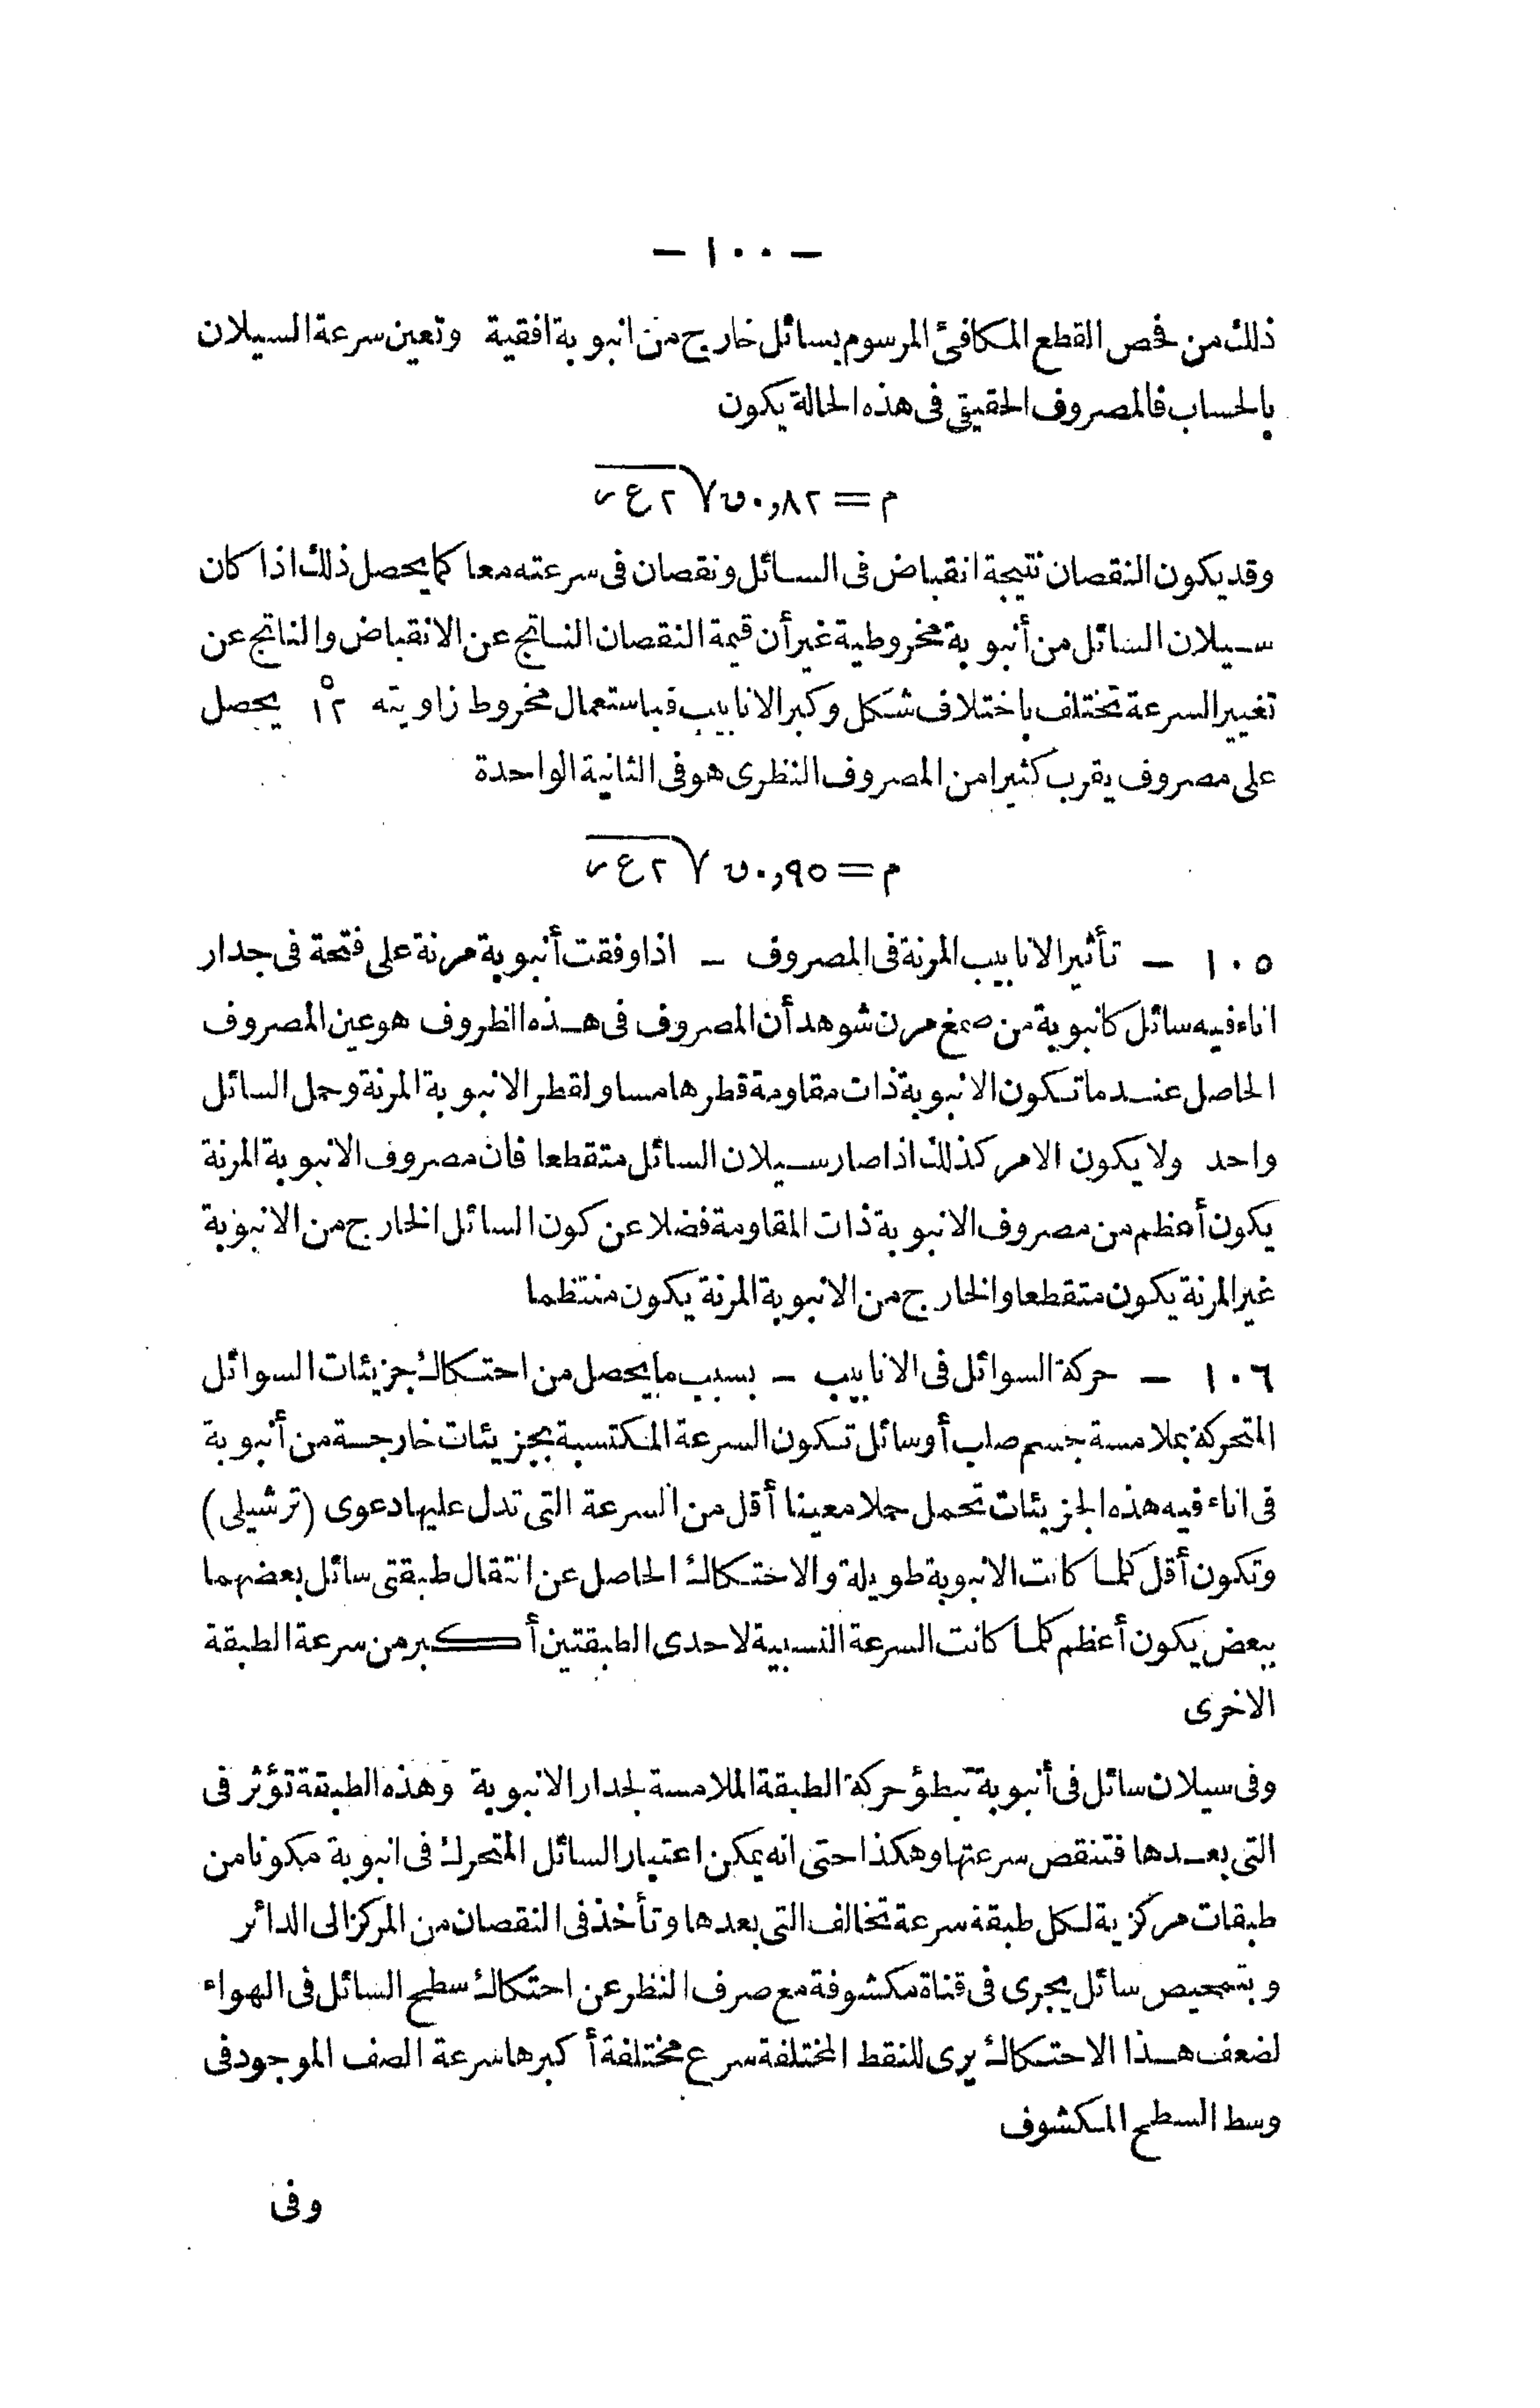 — ١٠٠ —
ذلك من فحص القطع المكافئ المرسوم بسائل خارج من انبوبة افقية وتعين سرعة السيلان
بالحساب فالمصروف الحقيقى فى هذه الحالة يكون
م = ٠,٨٢ ں √٢ع ر
وقد يكون النقصان نتيجة انقباض فى السائل ونقصان فى سرعته معا كما يحصل ذلك اذا كان
سيلان السائل من أنبوبة مخروطية غير أن قيمة النقصان الناتج عن الانقباض والناتج عن
تغيير السرعة تختلف باختلاف شكل وكبر الانابيب فباستعمال مخروط زاويته ١٢° يحصل
على مصروف يقرب كثيرا من المصروف النظرى هو فى الثانية الواحدة
م = ٠,٩٥ ں √٢ع ر
١٠٥ — تأثير الانابيب المرنة فى المصروف — اذا وفقت أنبوبة مرنة على فتحة فى جدار
اناء فيه سائل كانبوبة من صمغ مرن شوهد أن المصروف فى هذه الظروف هو عين المصروف
الحاصل عندما تكون الانبوبة ذات مقاومة قطرها مساو لقطر الانبوبة المرنة وحمل السائل
واحد ولا يكون الامر كذلك اذا صار سيلان السائل متقطعا فان مصروف الانبوبة المرنة
يكون أعظم من مصروف الانبوبة ذات المقاومة فضلا عن كون السائل الخارج من الانبوبة
غير المرنة يكون متقطعا والخارج من الانبوبة المرنة يكون منتظما
١٠٦ — حركة السوائل فى الانابيب — بسبب ما يحصل من احتكاك جزيئات السوائل
المتحركة بملامسة جسم صلب أو سائل تكون السرعة المكتسبة بجزيئات خارجة من أنبوبة
فى اناء فيه هذه الجزيئات تحمل حملا معينا أقل من السرعة التى تدل عليها دعوى (ترشيلى)
وتكون أقل كلما كانت الانبوبة طويلة والاحتكاك الحاصل عن انتقال طبقتى سائل بعضهما
ببعض يكون أعظم كلما كانت السرعة النسبية لاحدى الطبقتين أكبر من سرعة الطبقة
الاخرى
وفى سيلان سائل فى أنبوبة تبطؤ حركة الطبقة الملامسة لجدار الانبوبة وهذه الطبقة تؤثر فى
التى بعدها فتنقص سرعتها وهكذا حتى انه يمكن اعتبار السائل المتحرك فى انبوبة مكونا من
طبقات مركزية لكل طبقة سرعة تخالف التى بعدها وتأخذ فى النقصان من المركز الى الدائر
وبتمحيص سائل يجرى فى قناة مكشوفة مع صرف النظر عن احتكاك سطح السائل فى الهواء
لضعف هذا الاحتكاك يرى للنقط المختلفة سرع مختلفة أكبرها سرعة الصف الموجود فى
وسط السطح المكشوف
وفى